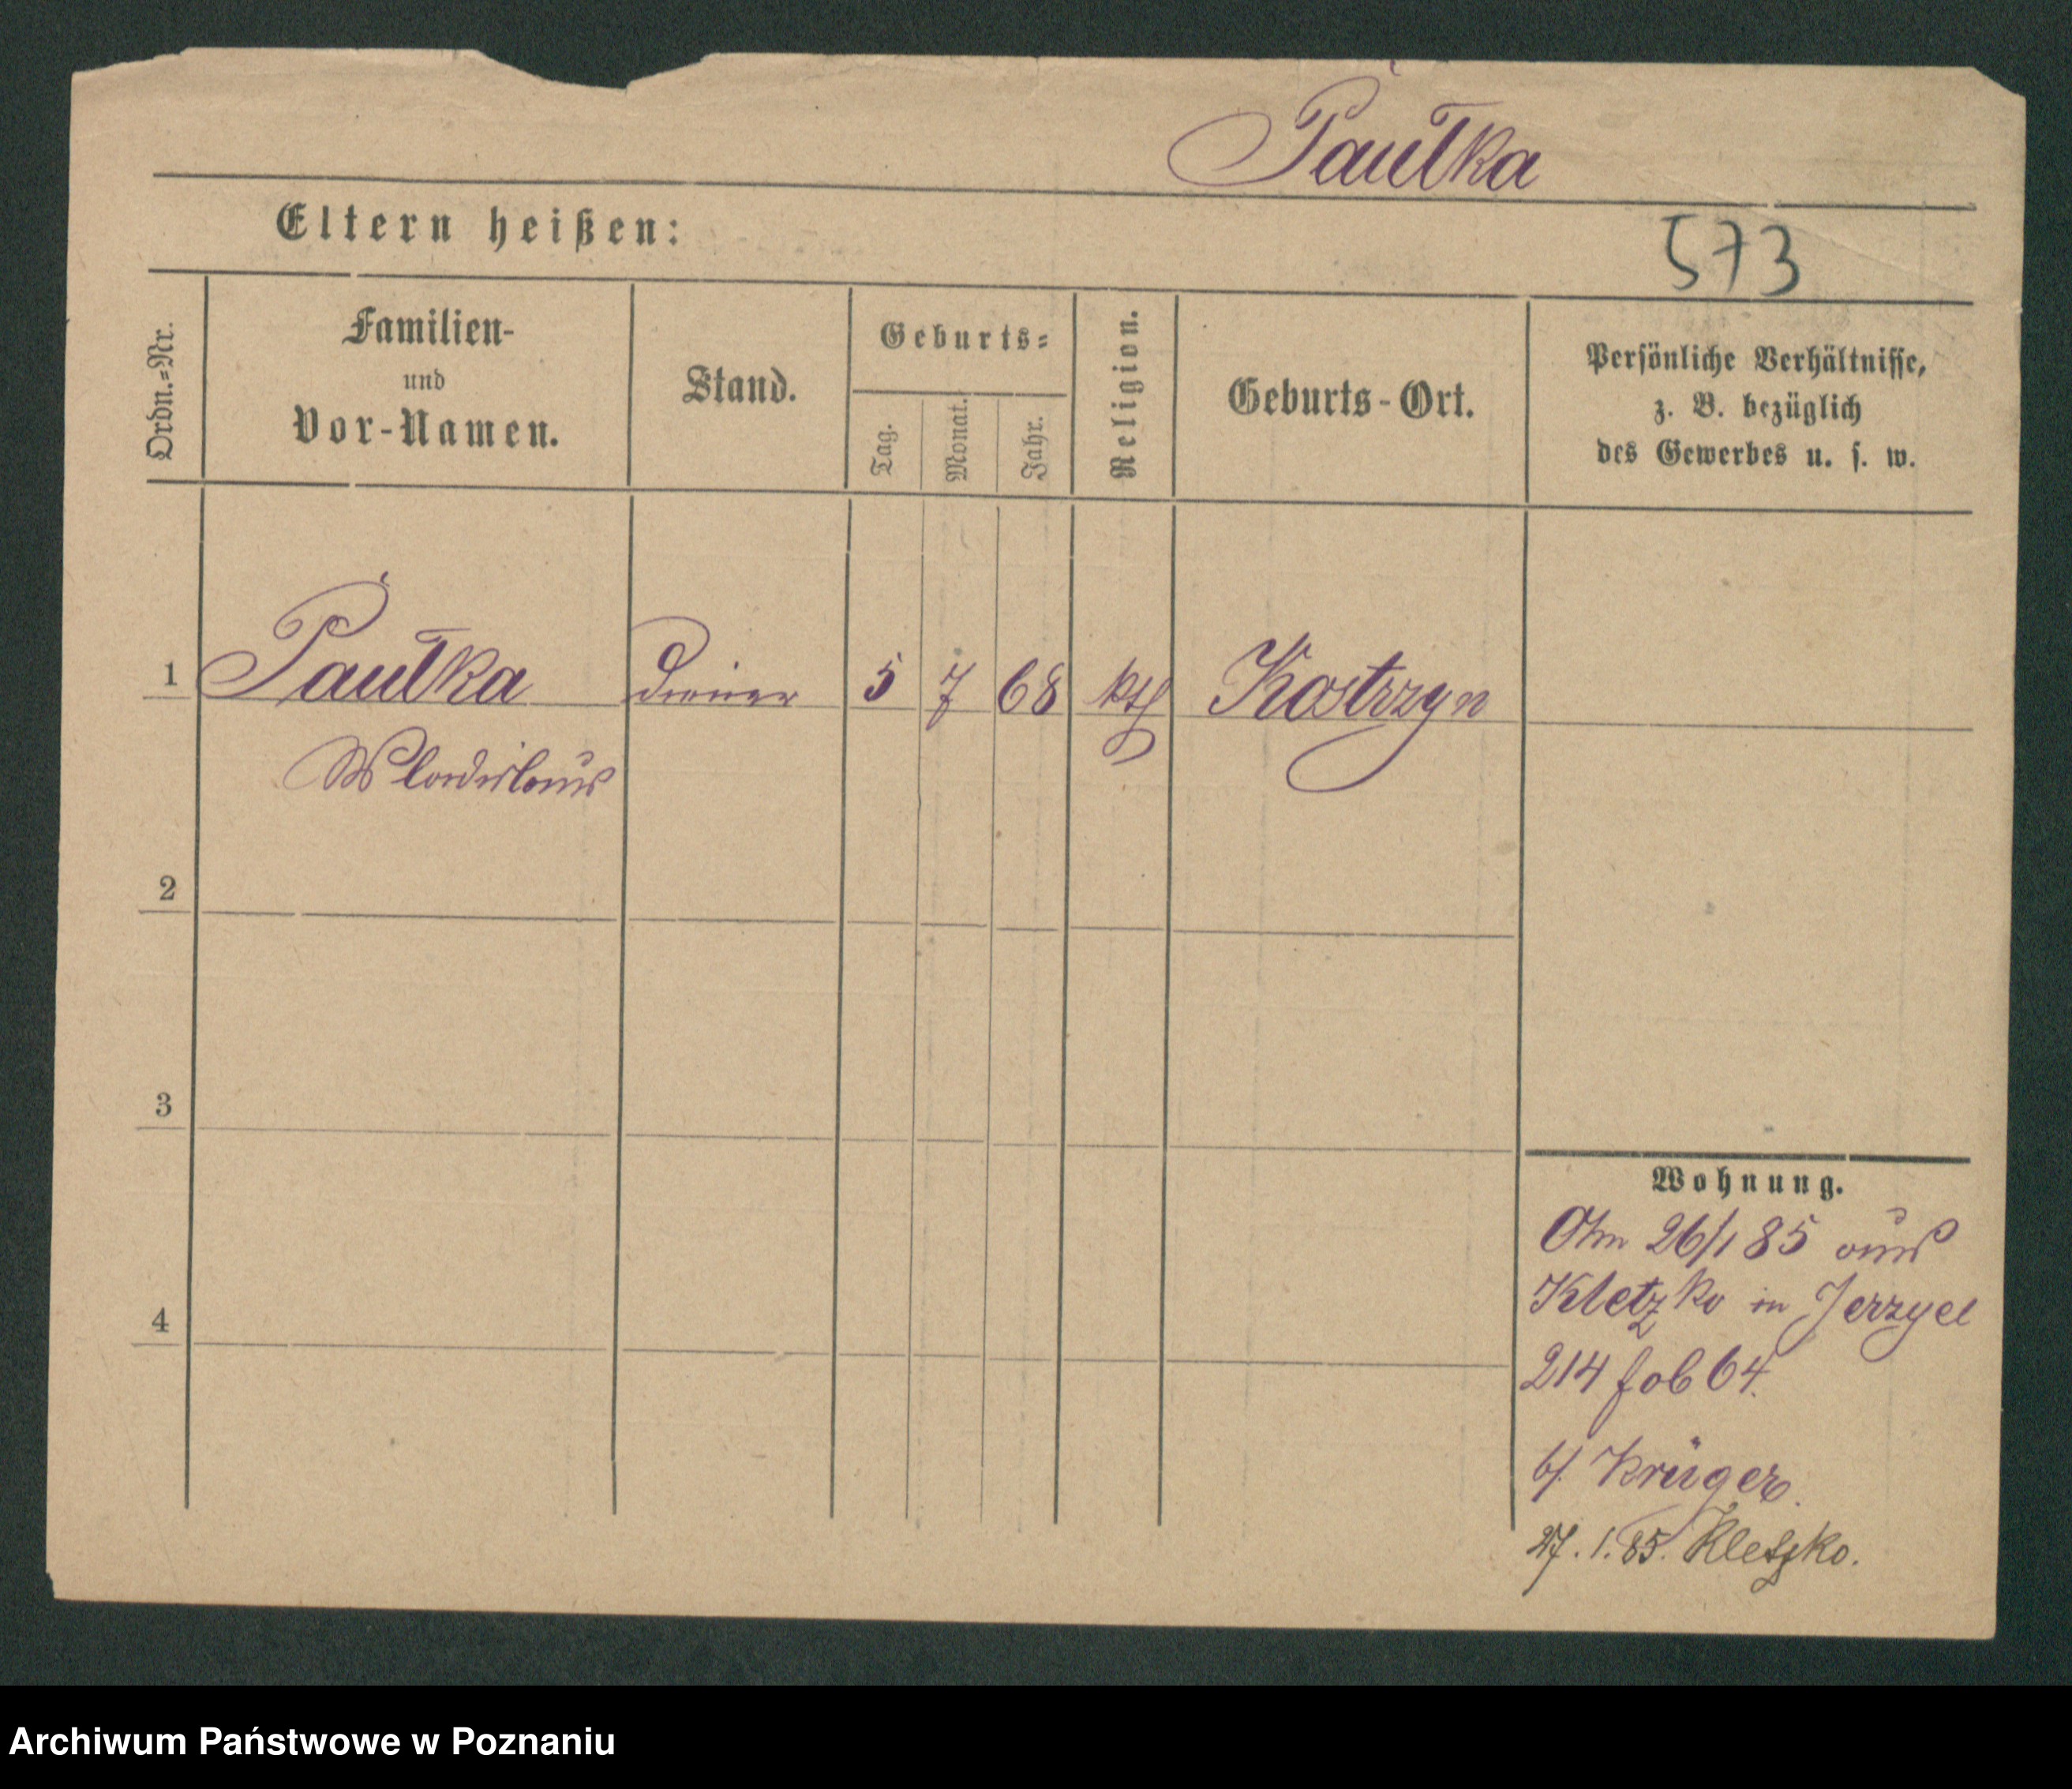 Paulka
Eltern heißen:
573
Ordn.=Nr.
Familien-
und
Vor-Namen.
Stand.
Geburts=
Tag.
Monat.
Jahr.
Religion.
Geburts-Ort.
Persönliche Verhältnisse,
z. B. bezüglich
des Gewerbes u. s. w.
1 Paulka Diener 5 7 68 kth Kostrzyn
Wladislaus
2
3
4
Wohnung.
26/1 85 aus
Kletzko in
214 fol 64.
b/ Krüger.
27. 1. 85. Kletzko.
Archiwum Państwowe w Poznaniu